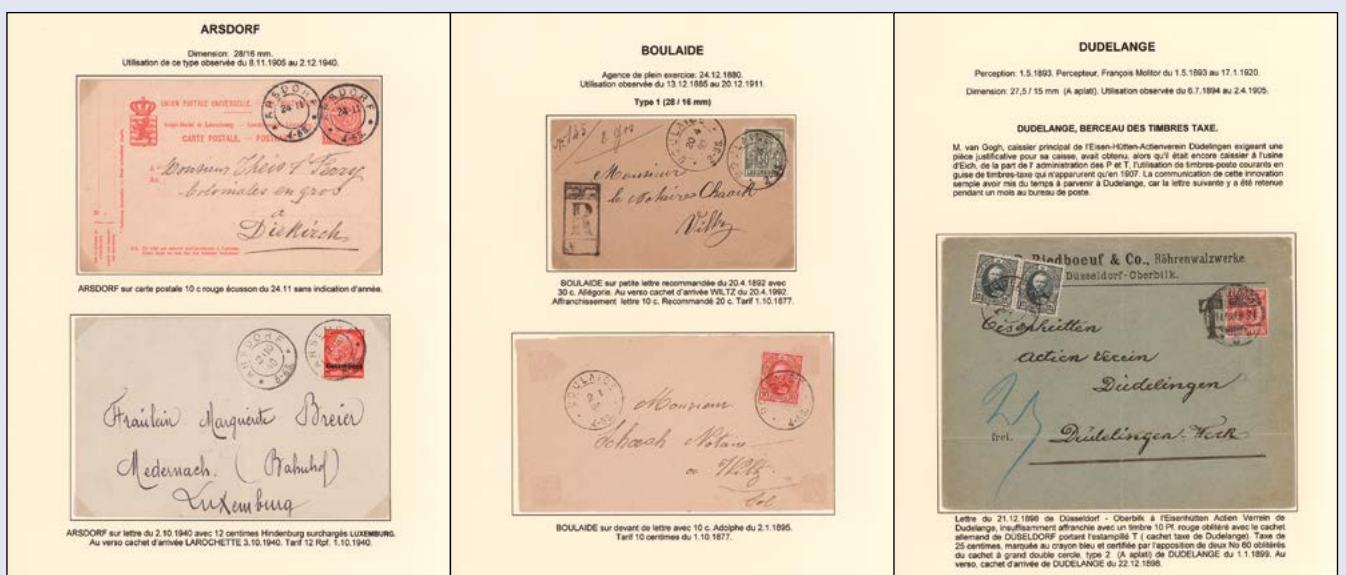 ARSDORF
Dimension: 28/16 mm.
Utilisation de ce type observée du 8.11.1905 au 2.12.1940.
UNION POSTALE UNIVERSELLE.
CARTE POSTALE. – POST
ARSDORF
24-11
4-5S.
ARSDORF
24-11
4-5S.
Monsieur Theis &
Coloniales en gros
à
Diekirch
ARSDORF sur carte postale 10 c rouge écusson du 24.11 sans indication d'année.
ARSDORF
Fräulein Marguerite Breier
Medernach. (Bahnhof)
Luxemburg
ARSDORF sur lettre du 2.10.1940 avec 12 centimes Hindenburg surchargés LUXEMBURG.
Au verso cachet d'arrivée LAROCHETTE 3.10.1940. Tarif 12 Rpf. 1.10.1940.
BOULAIDE
Agence de plein exercice: 24.12.1880.
Utilisation observée du 13.12.1885 au 20.12.1911.
Type 1 (28 / 16 mm)
BOULAIDE
R
Monsieur
le Notaire
Wiltz
BOULAIDE sur petite lettre recommandée du 20.4.1892 avec
30 c. Allégorie. Au verso cachet d'arrivée WILTZ du 20.4.1992.
Affranchissement lettre 10 c. Recommandé 20 c. Tarif 1.10.1877.
BOULAIDE
2 1
4-5S.
Monsieur
Notaire
Wiltz
BOULAIDE sur devant de lettre avec 10 c. Adolphe du 2.1.1895.
Tarif 10 centimes du 1.10.1877.
DUDELANGE
Perception: 1.5.1893. Percepteur, François Molitor du 1.5.1893 au 17.1.1920.
Dimension: 27,5 / 15 mm (A aplati). Utilisation observée du 6.7.1894 au 2.4.1905.
DUDELANGE, BERCEAU DES TIMBRES TAXE.
M. van Gogh, caissier principal de l'Eisen-Hütten-Actienverein Düdelingen exigeant une
pièce justificative pour sa caisse, avait obtenu, alors qu'il était encore caissier à l'usine
d'Eich, de la part de l' administration des P et T, l'utilisation de timbres-poste courants en
guise de timbres-taxe qui n'apparurent qu'en 1907. La communication de cette innovation
semple avoir mis du temps à parvenir à Dudelange, car la lettre suivante y a été retenue
pendant un mois au bureau de poste.
Riedboeuf & Co., Röhrenwalzwerke
Düsseldorf-Oberbilk.
T
Eisenhütten
Actien Verein
Düdelingen
frei.
Düdelingen-Werk
Lettre du 21.12.1898 de Düsseldorf - Oberbilk à l'Eisenhütten Actien Verrein de
Dudelange, insuffisamment affranchie avec un timbre 10 Pf. rouge oblitéré avec le cachet
allemand de DÜSELDORF portant l'estampillé T ( cachet taxe de Dudelange). Taxe de
25 centimes, marquée au crayon bleu et certifiée par l'apposition de deux No 60 oblitérés
du cachet à grand double cercle, type 2 (A aplati) de DUDELANGE du 1.1.1899. Au
verso, cachet d'arrivée de DUDELANGE du 22.12.1898.